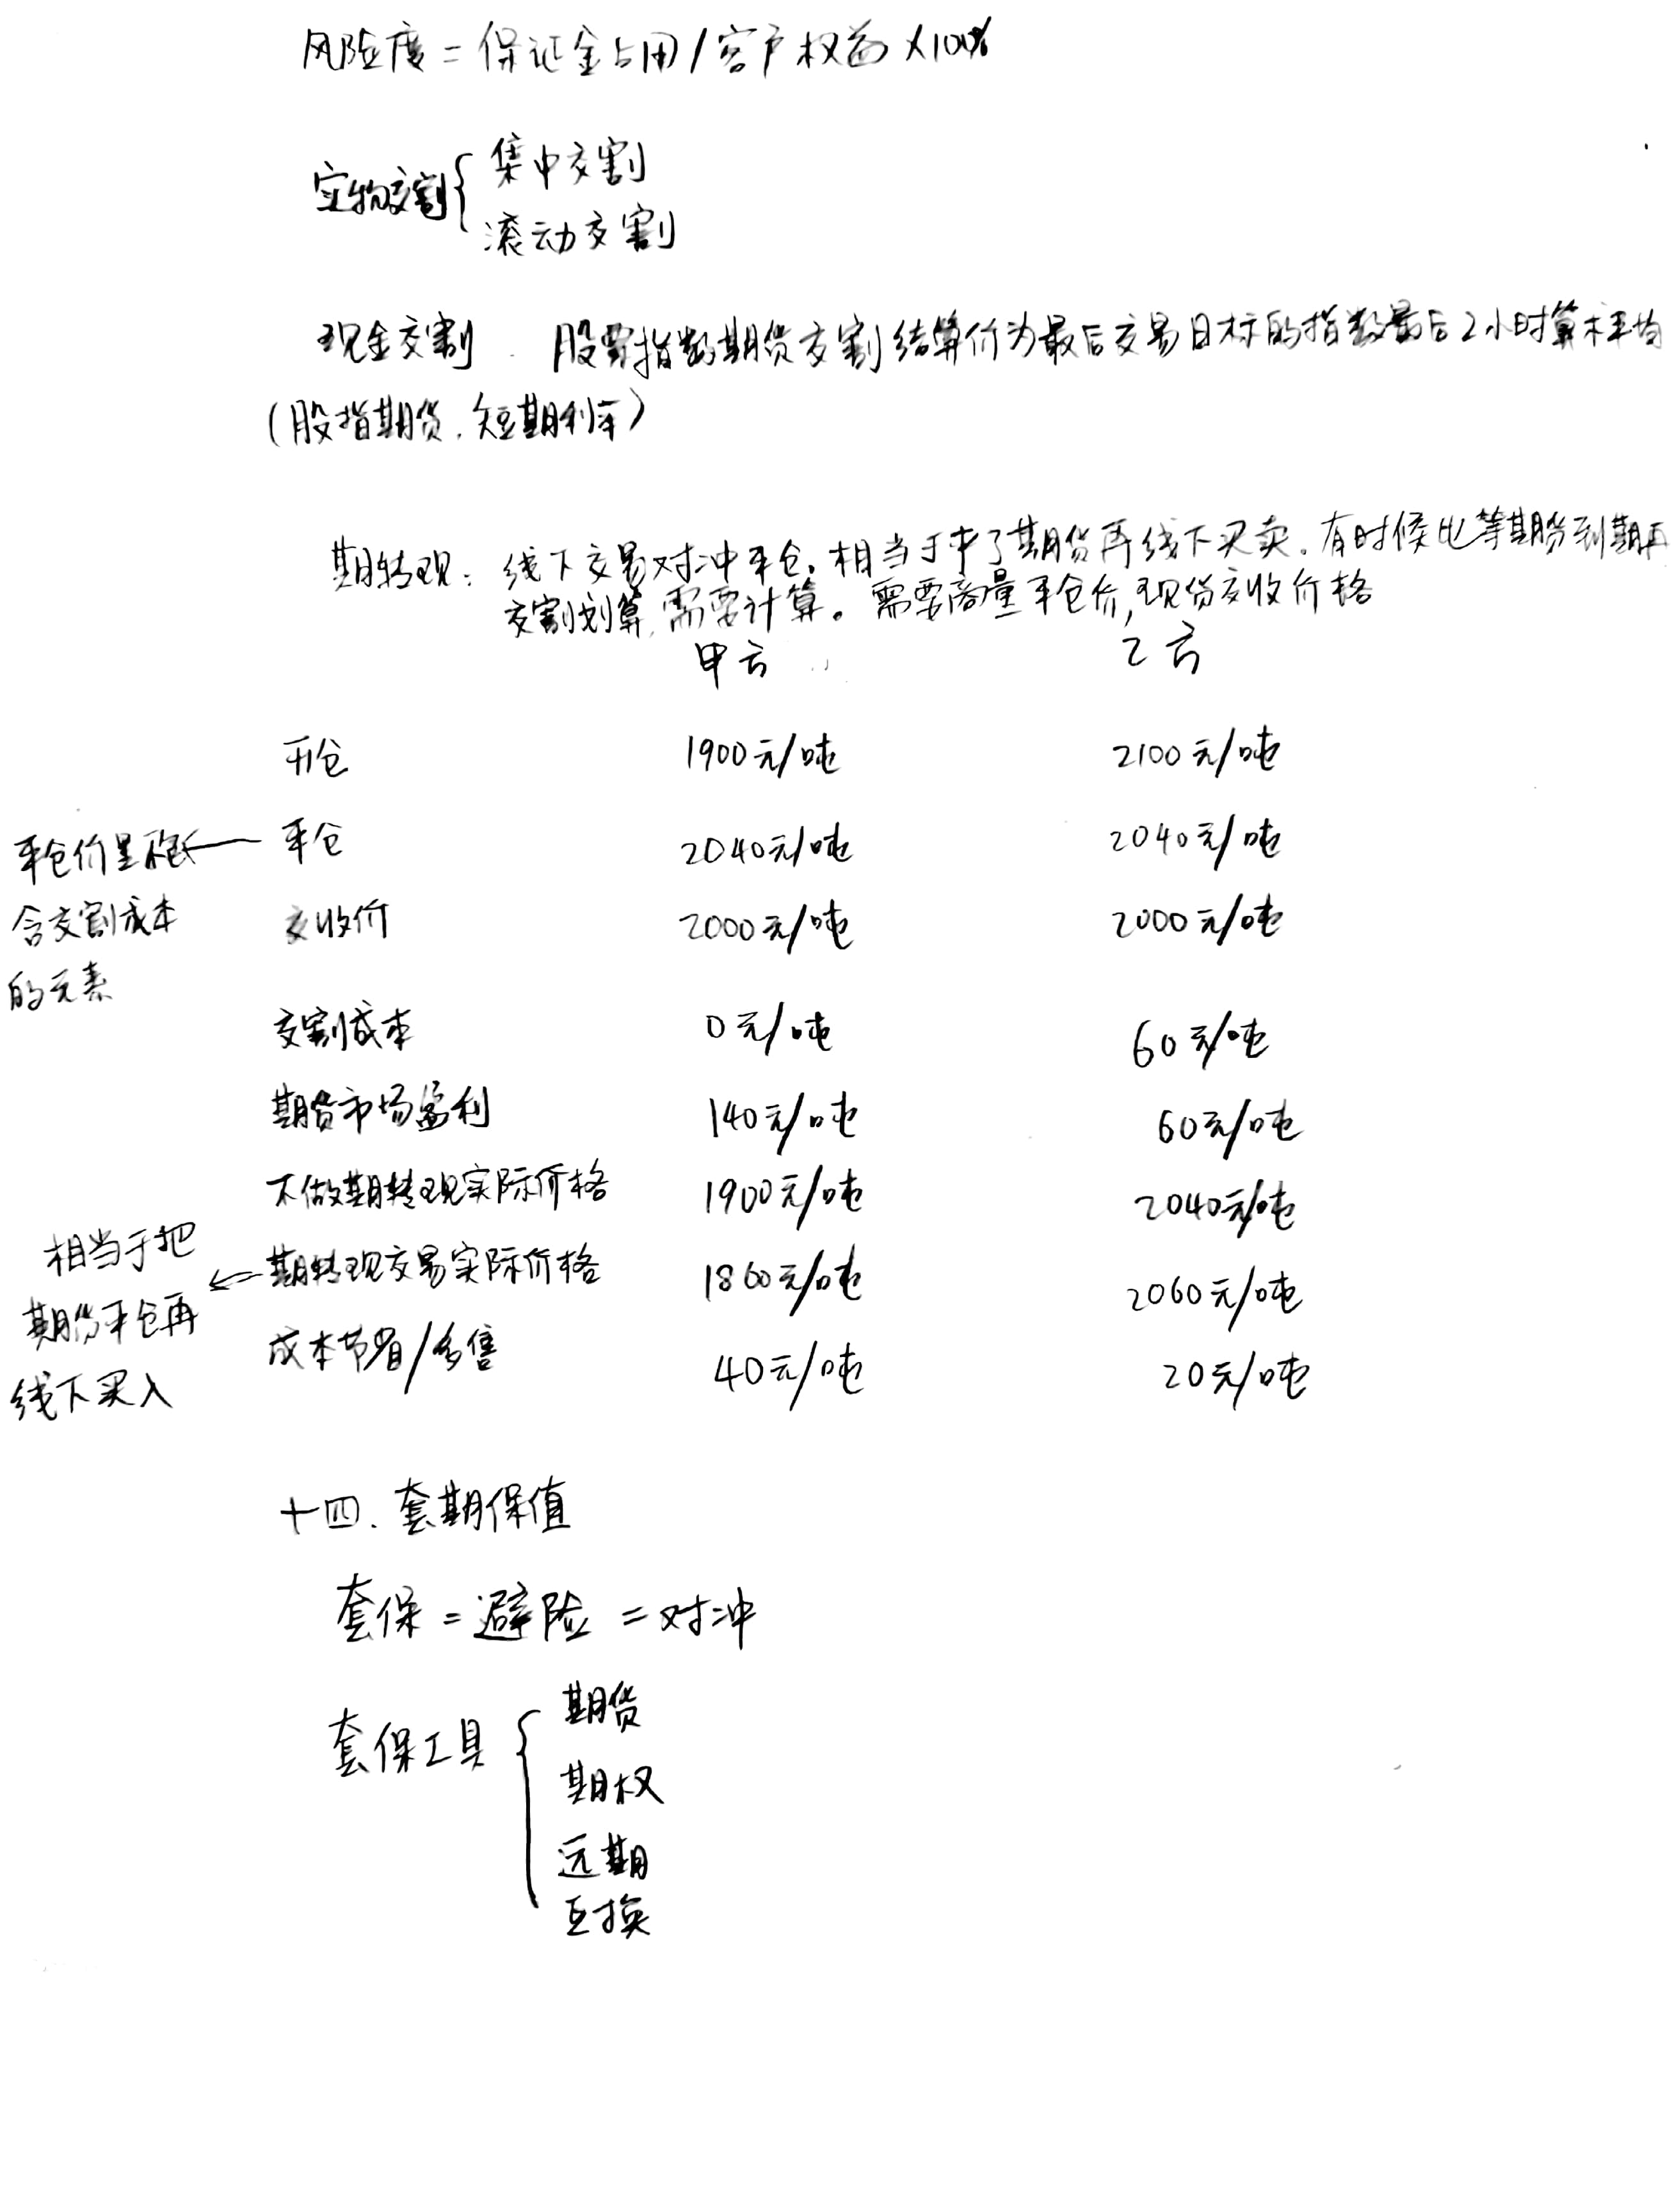 风险度=保证金占用/客户权益×100%
实物交割{集中交割
滚动交割
现金交割 股票指数期货交割结算价为最后交易日标的指数最后2小时算术平均
(股指期货,短期利率)
期转现:线下交易对冲平仓,相当于平了期货再线下买卖。有时候比等期货到期再
交割划算,需要计算。需要商量平仓价,现货交收价格
甲方 乙方
开仓 1900元/吨 2100元/吨
平仓 2040元/吨 2040元/吨
平仓价里
含交割成本
的元素
交收价 2000元/吨 2000元/吨
交割成本 0元/吨 60元/吨
期货市场盈利 140元/吨 60元/吨
不做期转现实际价格 1900元/吨 2040元/吨
期转现交易实际价格 1860元/吨 2060元/吨
相当于把
期货平仓再
线下买入
成本节省/多售 40元/吨 20元/吨
十四.套期保值
套保=避险=对冲
套保工具{期货
期权
远期
互换